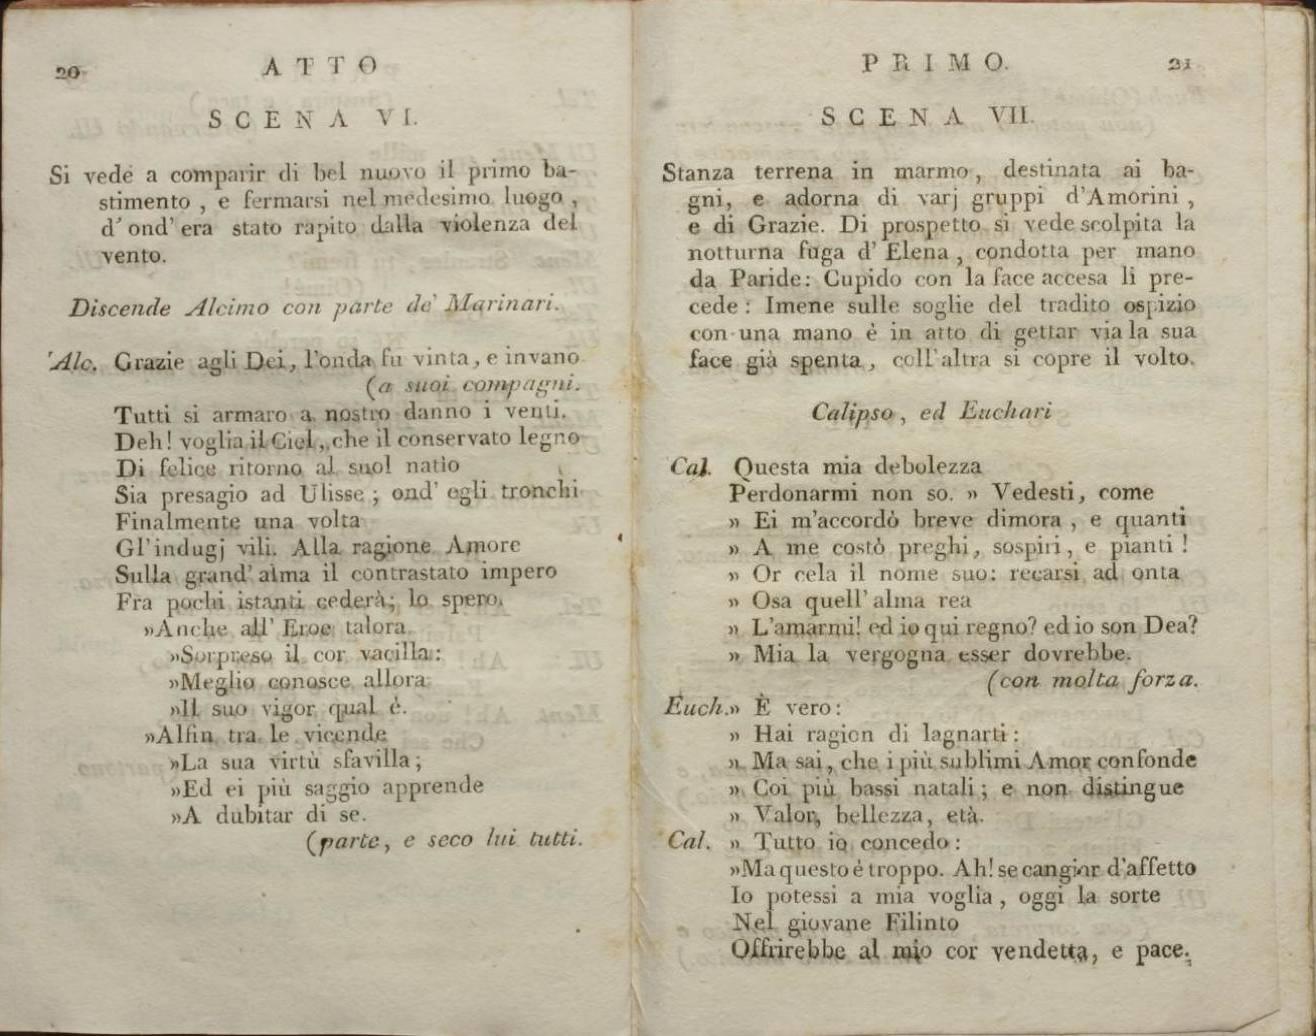 20
ATTO
SCENA VI.
Si vede a comparir di bel nuovo il primo ba-
stimento , e fermarsi nel medesimo luogo ,
d' ond' era stato rapito dalla violenza del
vento.
Discende Alcimo con parte de' Marinari.
Alc. Grazie agli Dei, l'onda fu vinta, e invano
(a suoi compagni.
Tutti si armaro a nostro danno i venti.
Deh! voglia il Ciel, che il conservato legno
Di felice ritorno al suol natìo
Sia presagio ad Ulisse ; ond' egli tronchi
Finalmente una volta
Gl'indugj vili. Alla ragione Amore
Sulla grand' alma il contrastato impero
Fra pochi istanti cederà; lo spero.
»Anche all' Eroe talora
»Sorpreso il cor vacilla:
»Meglio conosce allora
»Il suo vigor qual è.
»Alfin tra le vicende
»La sua virtù sfavilla;
»Ed ei più saggio apprende
»A dubitar di se.
(parte, e seco lui tutti.
PRIMO.
21
SCENA VII.
Stanza terrena in marmo, destinata ai ba-
gni, e adorna di varj gruppi d'Amorini ,
e di Grazie. Di prospetto si vede scolpita la
notturna fuga d' Elena , condotta per mano
da Paride: Cupido con la face accesa li pre-
cede : Imene sulle soglie del tradito ospizio
con una mano è in atto di gettar via la sua
face già spenta, coll'altra si copre il volto.
Calipso, ed Euchari
Cal. Questa mia debolezza
Perdonarmi non so. » Vedesti, come
» Ei m'accordò breve dimora , e quanti
» A me costò preghi, sospiri, e pianti !
» Or cela il nome suo: recarsi ad onta
» Osa quell' alma rea
» L'amarmi! ed io qui regno? ed io son Dea?
» Mia la vergogna esser dovrebbe.
(con molta forza.
Euch.» È vero:
» Hai ragion di lagnarti :
» Ma sai, che i più sublimi Amor confonde
» Coi più bassi natali ; e non distingue
» Valor, bellezza, età.
Cal. » Tutto io concedo :
»Ma questo è troppo. Ah! se cangiar d'affetto
Io potessi a mia voglia, oggi la sorte
Nel giovane Filinto
Offrirebbe al mio cor vendetta, e pace.